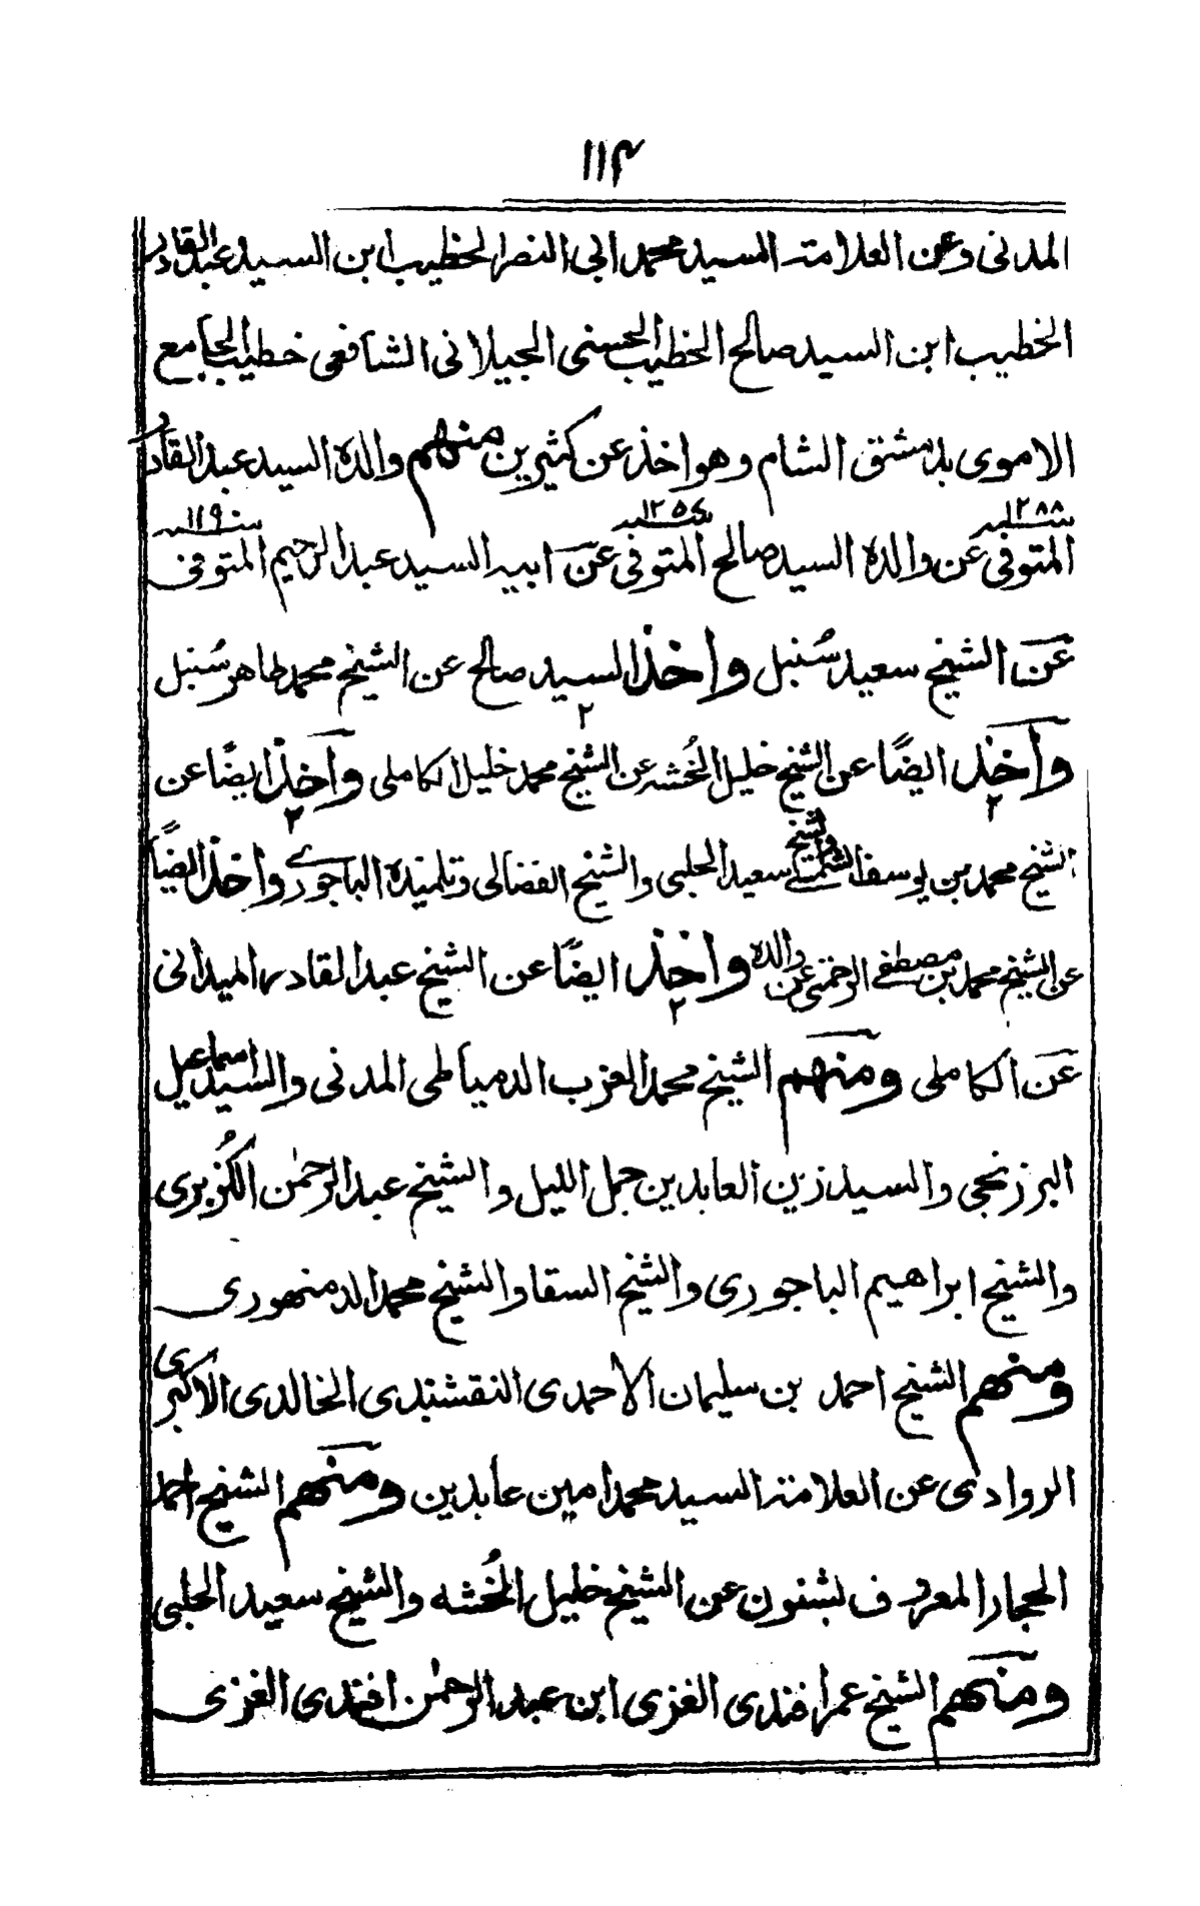 ١١٤
المدنى وعن العلامة السيد محمد ابى النصر الخطيب ابن السيد عبد القادر
الخطيب ابن السيد صالح الخطيب الحسنى الجيلانى الشافعى خطيب الجامع
الاموى بدمشق الشام وهو اخذ عن كثيرين منهم والده السيد عبد القادر
المتوفى سنة ١٢٨٨ عن والده السيد صالح المتوفى سنة ١٢٥٤ عن ابيه السيد عبد الرحيم المتوفى سنة ١١٩
عن الشيخ سعيد سُنبل واخذ السيد صالح عن الشيخ محمد طاهر سُنبل
٢
واخذ ايضًا عن الشيخ خليل الخُشه عن الشيخ محمد خليل الكاملى واخذ ايضا عن
٢ ٢
الشيخ محمد بن يوسف والشيخ سعيد الحلبى والشيخ الفضالى وتلميذه الباجورى واخذ ايضًا
عن الشيخ محمد بن مصطفى الرحمتى عن والده واخذ ايضًا عن الشيخ عبد القادر الميدانى
٢
عن الكاملى ومنهم الشيخ محمد العزب الدمياطى المدنى والسيد اسماعيل
البرزنجى والسيد زين العابدين جمل الليل والشيخ عبد الرحمٰن الكُزبرى
والشيخ ابراهيم الباجورى والشيخ السقا والشيخ محمد الدمنهورى
ومنهم الشيخ احمد بن سليمان الاحمدى النقشبندى الخالدى الاكبرى
الروادى عن العلامة السيد محمد امين عابدين ومنهم الشيخ احمد
الحجار المعروف بشنون عن الشيخ خليل الخُشه والشيخ سعيد الحلبى
ومنهم الشيخ عمر افندى الغزى ابن عبد الرحمٰن افندى الغزى